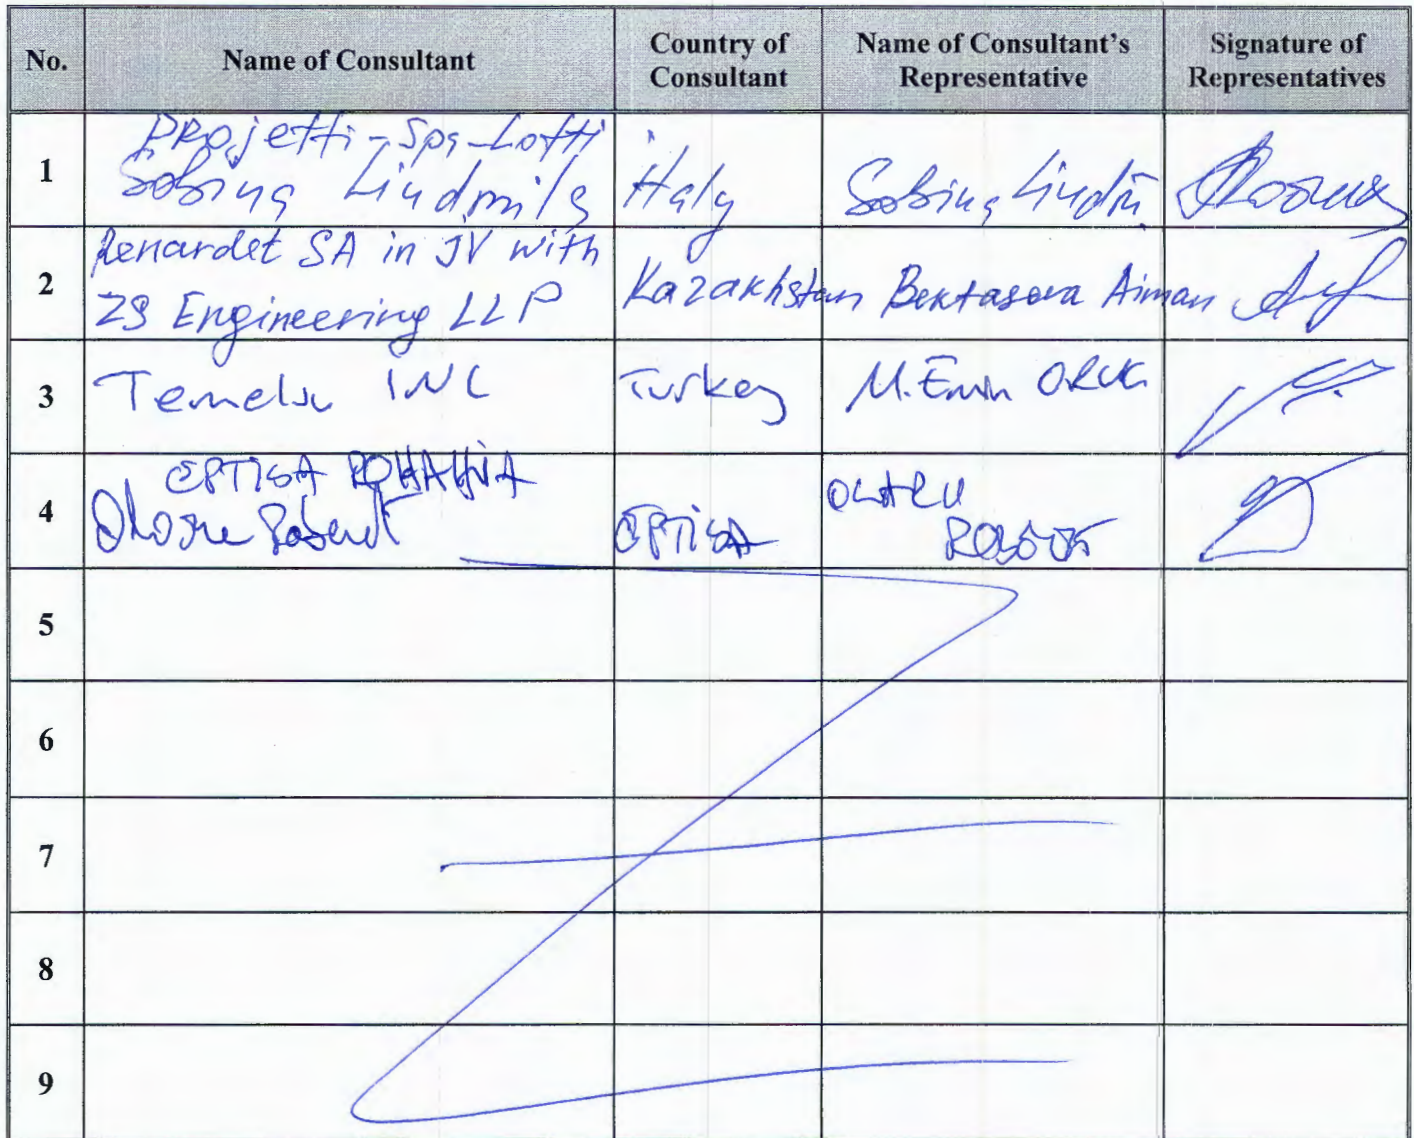 No.
Name of Consultant
Country of Consultant
Name of Consultant's Representative
Signature of Representatives
1
Projetti-Spa-Lotti
Sobina Liudmila
Italy
Sobina Liudm.
2
Renardet SA in JV with
ZS Engineering LLP
Kazakhstan
Bektasova Aiman
3
Temelsu INC
Turkey
M. Emin ORUC
4
EPTISA ROMANIA
EPTISA
OLARU
5
6
7
8
9